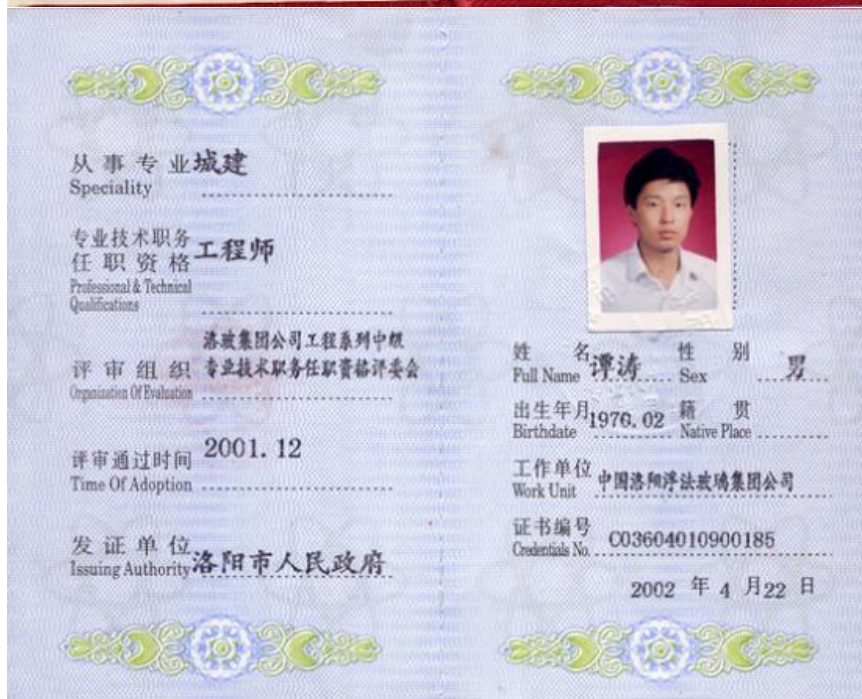 从事专业 城建
Speciality
专业技术职务
任职资格 工程师
Professional & Technical
Qualifications
洛玻集团公司工程系列中级
评审组织 专业技术职务任职资格评委会
Organization Of Evaluation
评审通过时间 2001.12
Time Of Adoption
发证单位
Issuing Authority 洛阳市人民政府
姓名 谭涛 性别 男
Full Name Sex
出生年月 1970.02 籍贯
Birthdate Native Place
工作单位 中国洛阳浮法玻璃集团公司
Work Unit
证书编号 C03604010900185
Credentials No.
2002 年 4 月 22 日